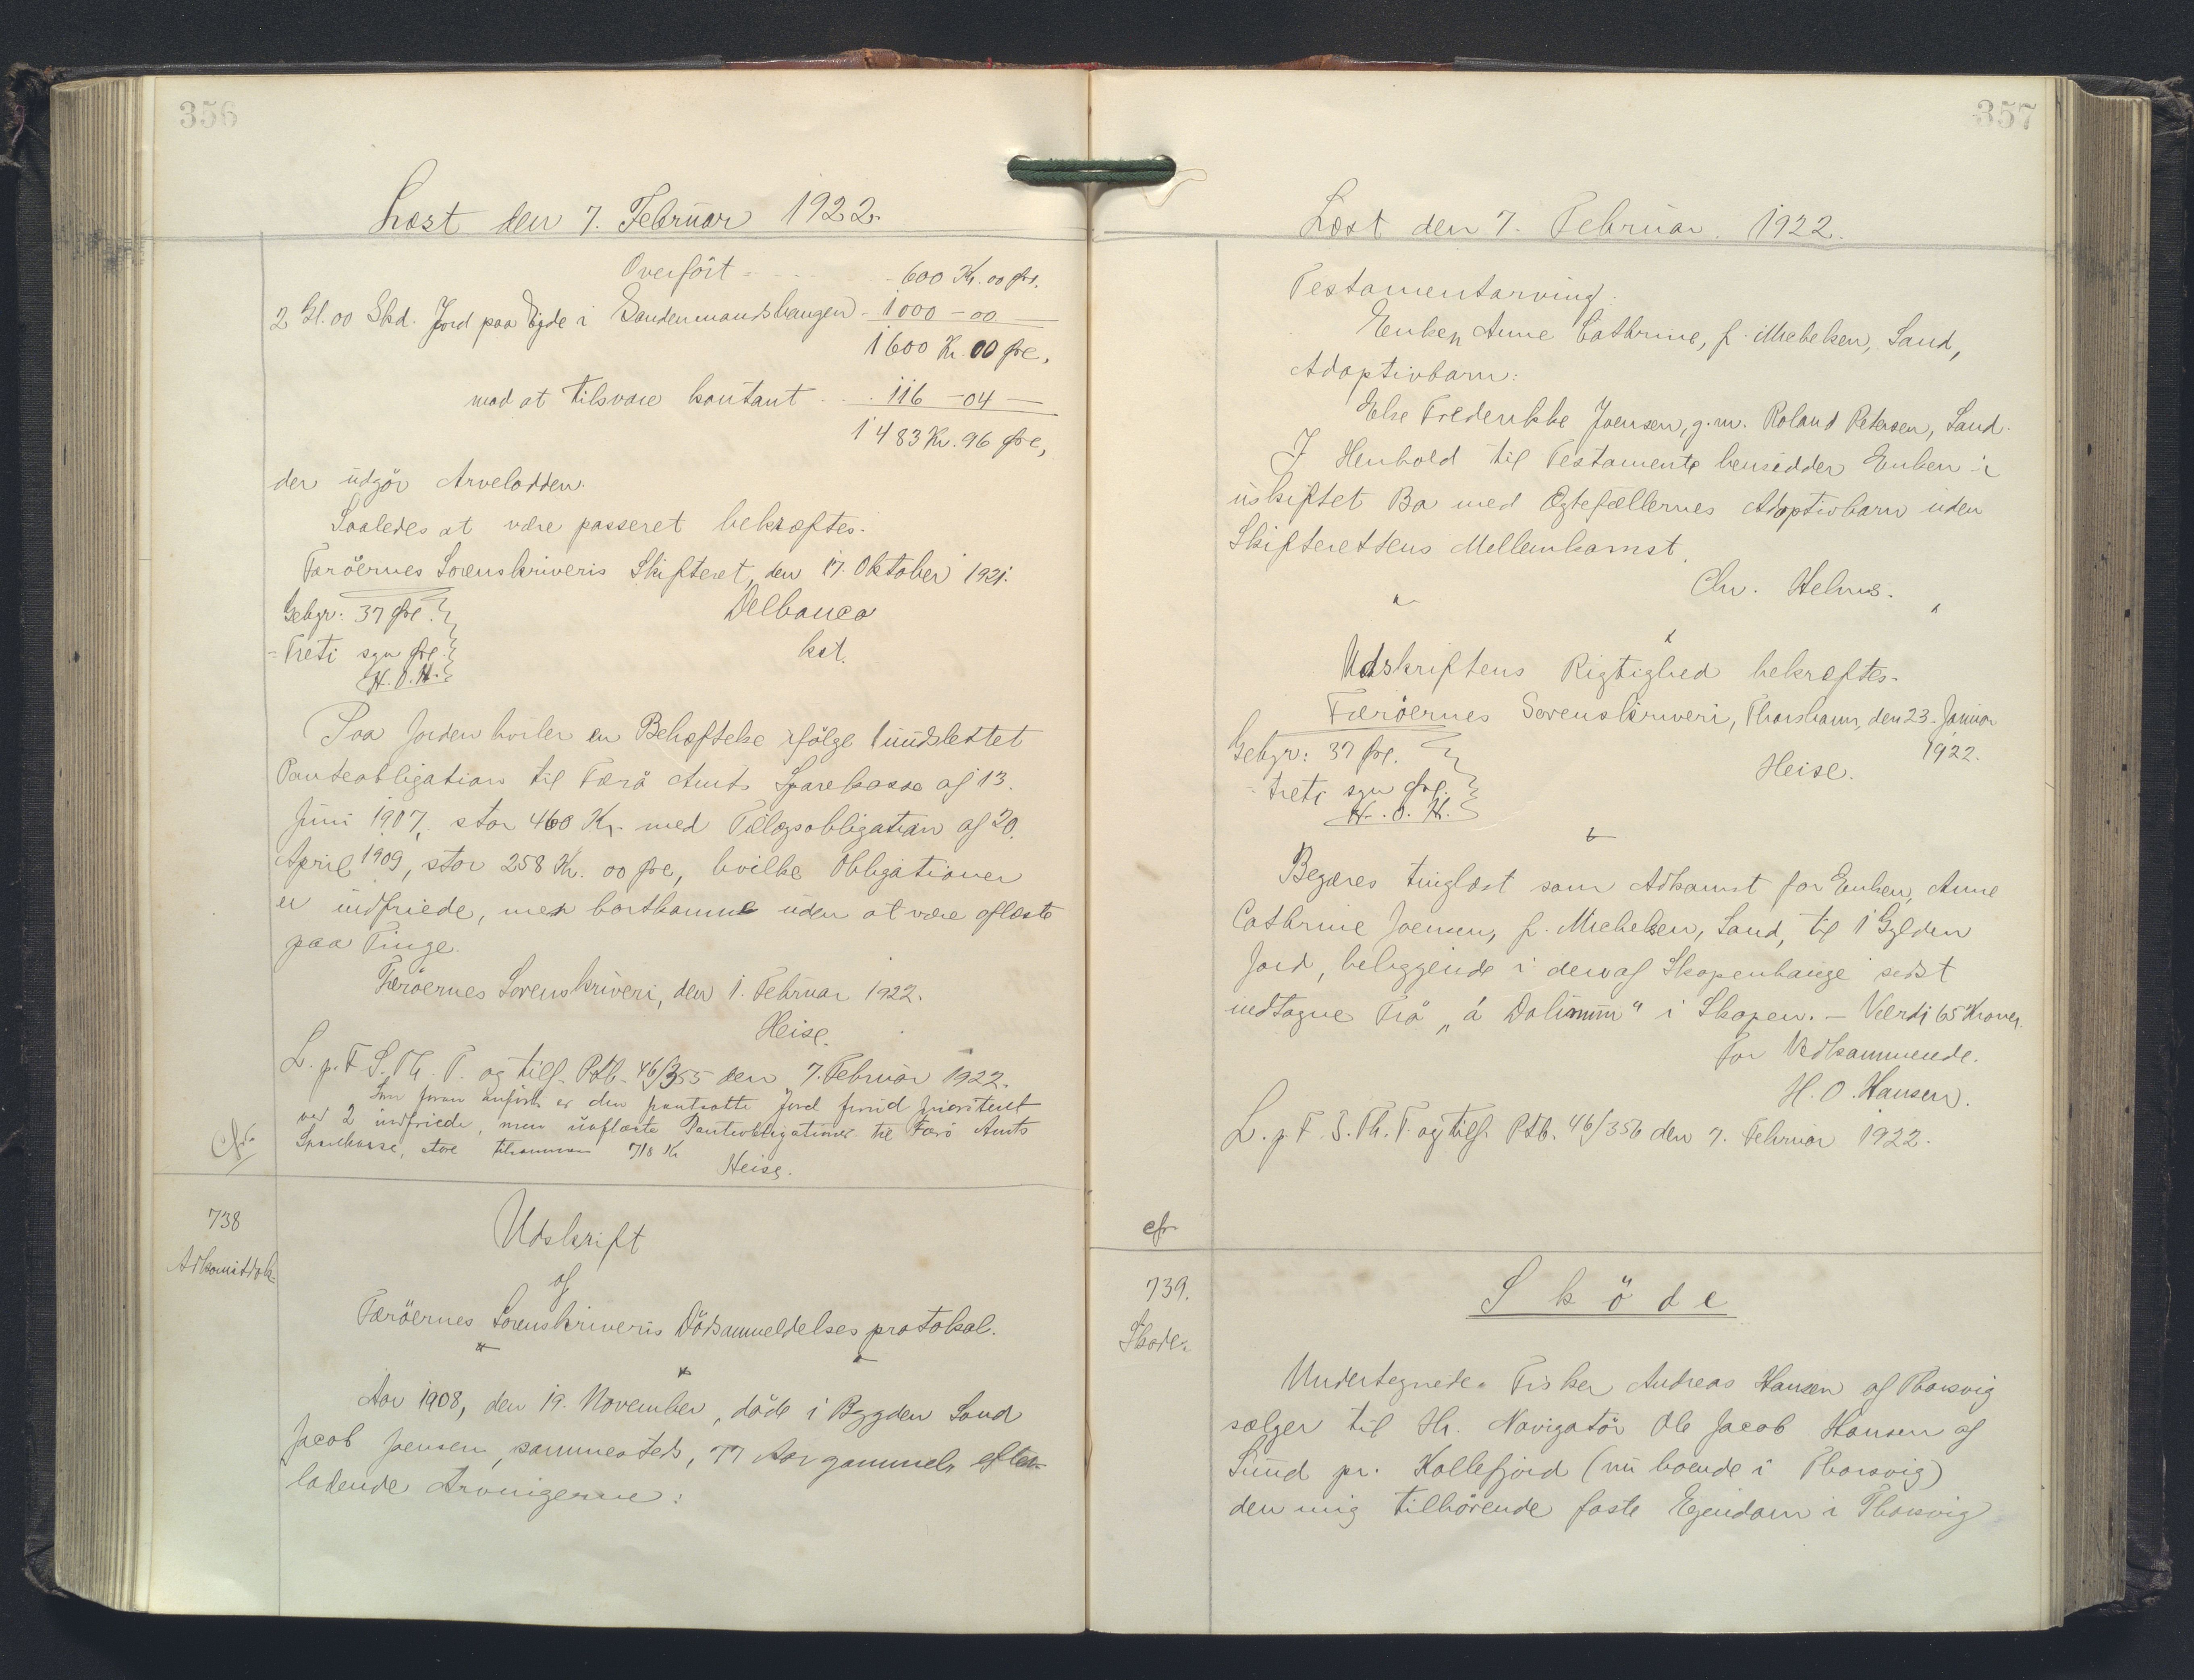 356
Læst den 7. Februar 1922.
Overført - - - - 600 Kr. 00 Øre.
2 Gl. 00 Skd. Jord paa Ejde i Bandenmandshaugen - 1000 - 00
1600 Kr. 00 Øre,
mod at tilsvare kontant - - 116 - 04 -
1483 Kr. 96 Øre,
der udgör Arvelodden.
Saaledes at være passeret bekræftes.
Færöernes Sorenskriveris Skifteret, den 17. Oktober 1921.
Gebyr: 37 Øre.
Delbanco
= Treti syv Øre.
kst.
H.O.H.
Paa Jorden hviler en Behæftelse ifölge uudslettet
Panteobligation til Færö Amts Sparekasse af 13.
Juni 1907, stor 460 Kr. med Tillægsobligation af 20.
April 1909, stor 258 Kr. 00 Øre, hvilke Obligationer
er indfriede, men bortkomne uden at være aflæste
paa Tinge.
Færöernes Sorenskriveri, den 1. Februar 1922.
Heise.
L. p. F. S. Th. T. og tilf. Ptb. 46/355 den 7. Februar 1922.
Som foran anført er den pantsatte Jord forud prioriteret
ved 2 indfriede, men uaflæste Panteobligationer til Færö Amts
Sparekasse, store tilsammen 718 Kr
Heise.
cfr.
738
Adkomstdok.
Udskrift
af
Færöernes Sorenskriveris Dödsanmeldelsesprotokol.
Aar 1908, den 19. November, döde i Bygden Sand
Jacob Joensen, sammesteds, 77 Aar gammel, efter-
ladende Arvingerne:
357
Læst den 7. Februar. 1922.
Testamentarving:
Enken Anne Cathrine, f. Michelsen, Sand,
Adoptivbarn:
Else Frederikke Joensen, g.m. Roland Petersen, Sand.
I Henhold til Testamente hensidder Enken i
uskiftet Bo med Ægtefællernes Adoptivbarn uden
Skifterettens Mellemkomst.
Chr. Helms.
Udskriftens Rigtighed bekræftes.
Færöernes Sorenskriveri, Thorshavn, den 23. Januar
1922.
Gebyr: 37 Øre.
Heise.
= treti syv Øre.
H.O.H.
Begæres tinglæst som Adkomst for Enken, Anne
Cathrine Joensen, f. Michelsen, Sand, til 1 Gylden
Jord, beliggende i den af Skopenhauge sidst
indtagne Trö „á Dolimum" i Skopen. - Værdi 65 Kroner.
For Vedkommende.
H. O. Hansen.
L. p. F. S. Th. T. og tilf. Ptb. 46/356 den 7. Februar 1922.
cfr.
739.
Skøde.
Sköde
Undertegnede Fisker Andreas Hansen af Thorsvig
sælger til Hr. Navigatör Ole Jacob Hansen af
Sund pr. Kollefjord (nu boende i Thorsvig)
den mig tilhörende faste Ejendom i Thorsvig